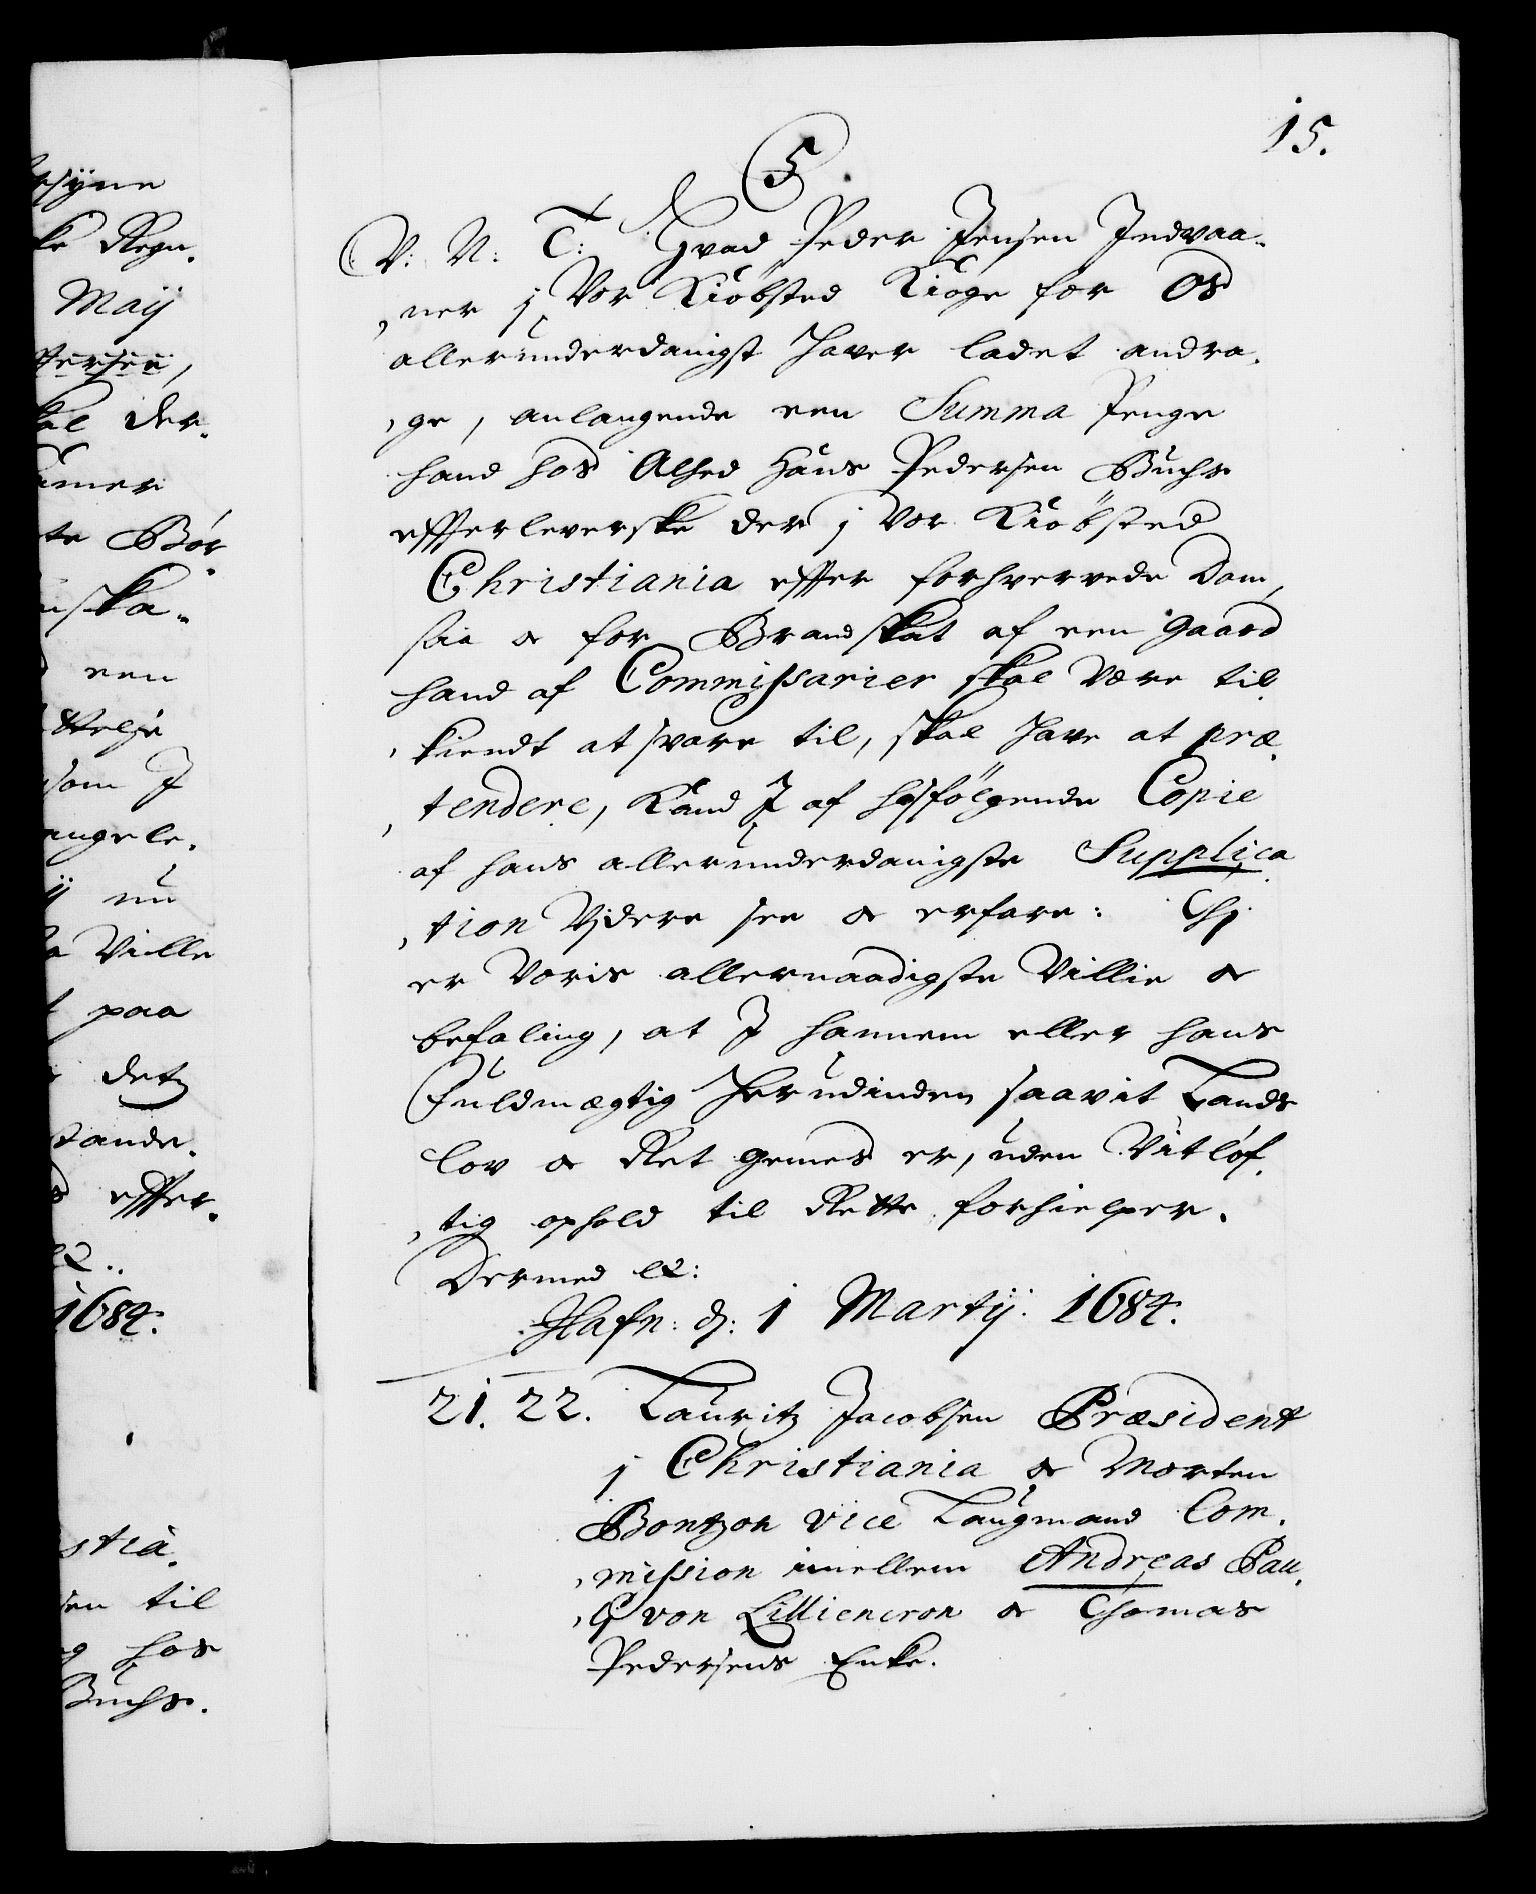 15.
5.
V: N: T: Hvad Peder Jensen Indvaa-
ner j Vor Kiöbsted Kiöge for Os
allerunderdanigst haver ladet andra-
ge, anlangende een Summa Penge
hand hos Alhed Hans Pedersen Buchs
effterleverske der j Vor Kiöbsted
Christiania effter forhvervede Dom,
saa & for Brandskat af een gaard
hand af Commissarier skal være til
kiendt at svare til, skal have at præ-
tendere, Kand J af hosfölgende Copie
af hans allerunderdanigste Supplica
tion Vjdere see & erfare: Thj
er Voris allernaadigste Villie &
befaling, at J hannem eller hans
Fuldmægtig herudinden saavit Lands
lov & Ret gemes er, uden Vitløf-
tig ophold til Rette forhielper.
Dermed &:
Hafn: d: 1 Martij. 1684.
21. 22. Lauritz Jacobsen Præsident
j Christiania & Morten
Bontzon vice Laugmand Com-
mission imellem Andreas Pau-
li von Lilliencron & Thomas
Pedersens Enke.
ke Regn-
Maij
der-
te Bør-
een
som J
nu
Ville
paa
detz
effter-
1684.
til
hos
Buchs.